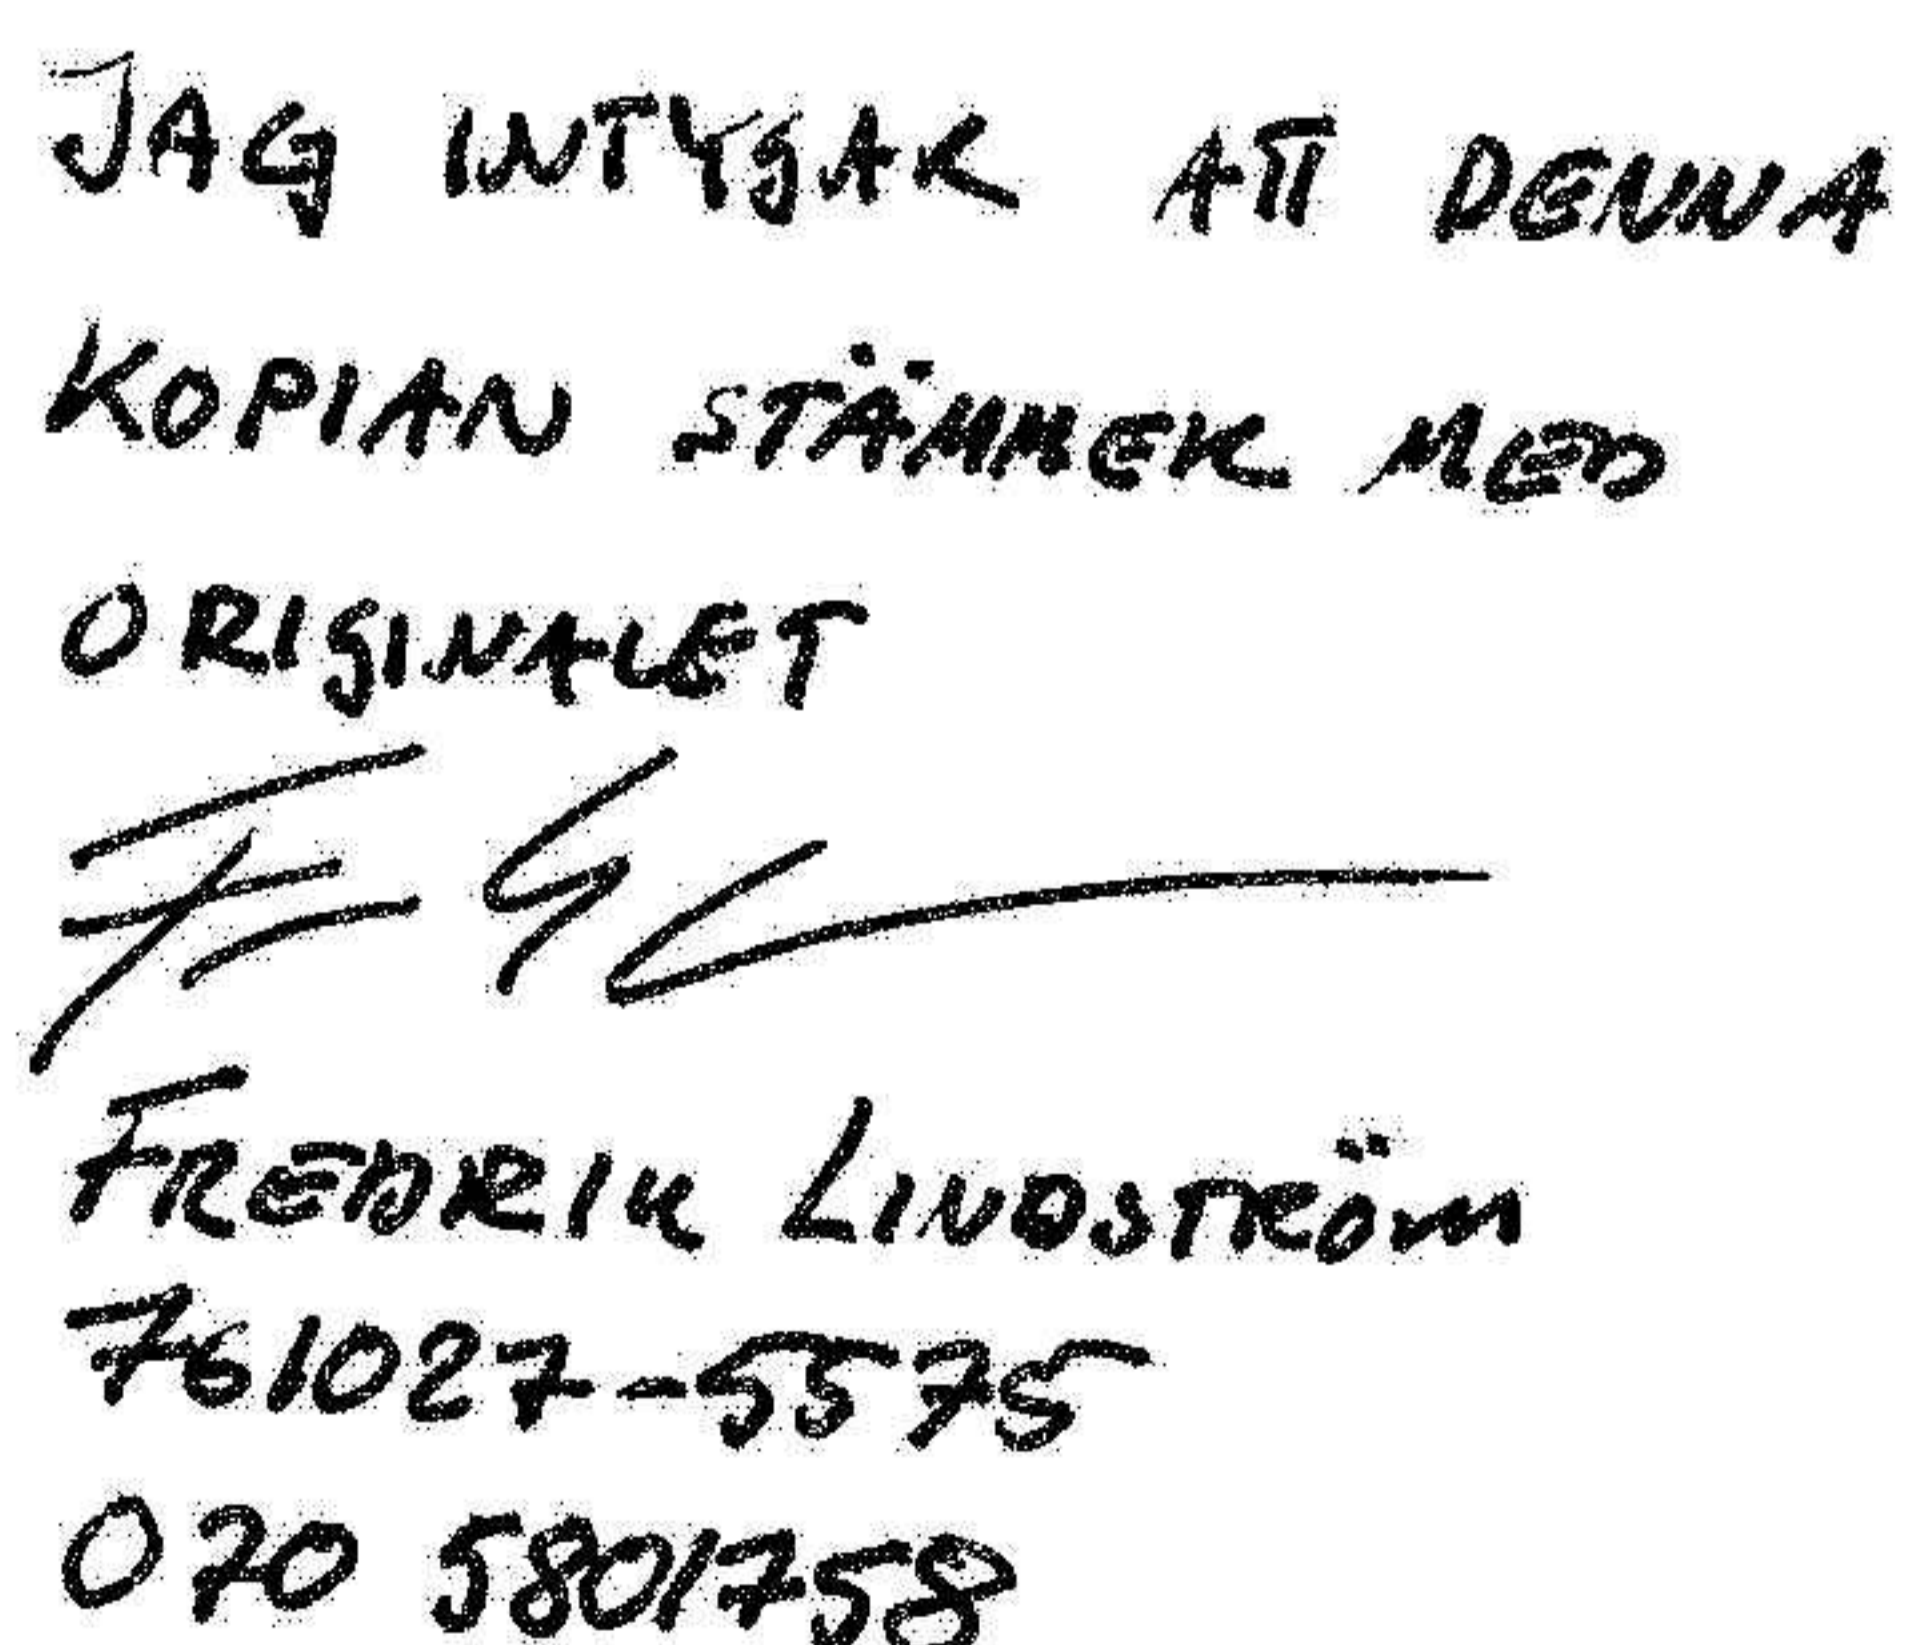 JAG INTYGAR ATT DENNA
KOPIAN STÄMMER MED
ORIGINALET
FREDRIK LINDSTRÖM
761027-5575
070 5801758